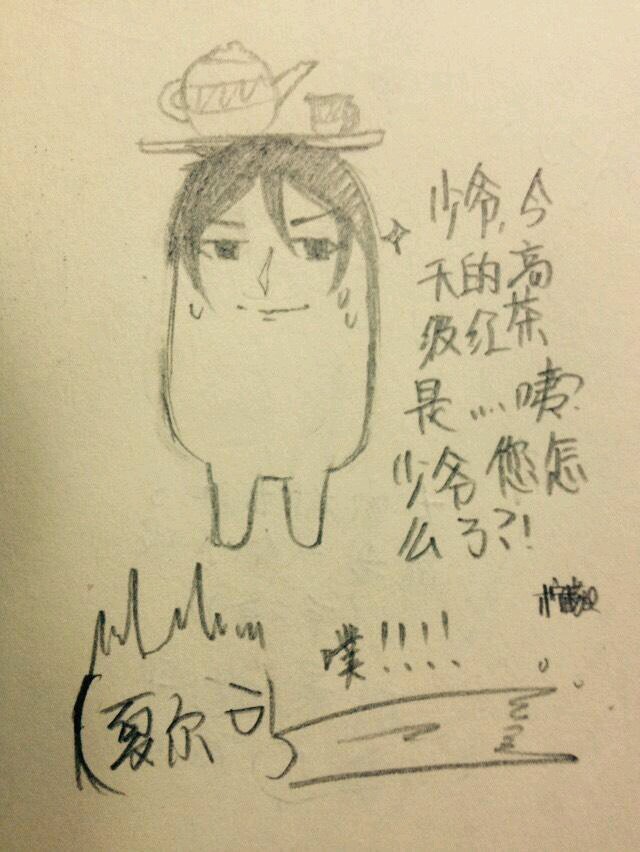 少爷,今
天的高
级红茶
是....咦?
少爷您怎
么了?!
噗!!!!
(夏尔